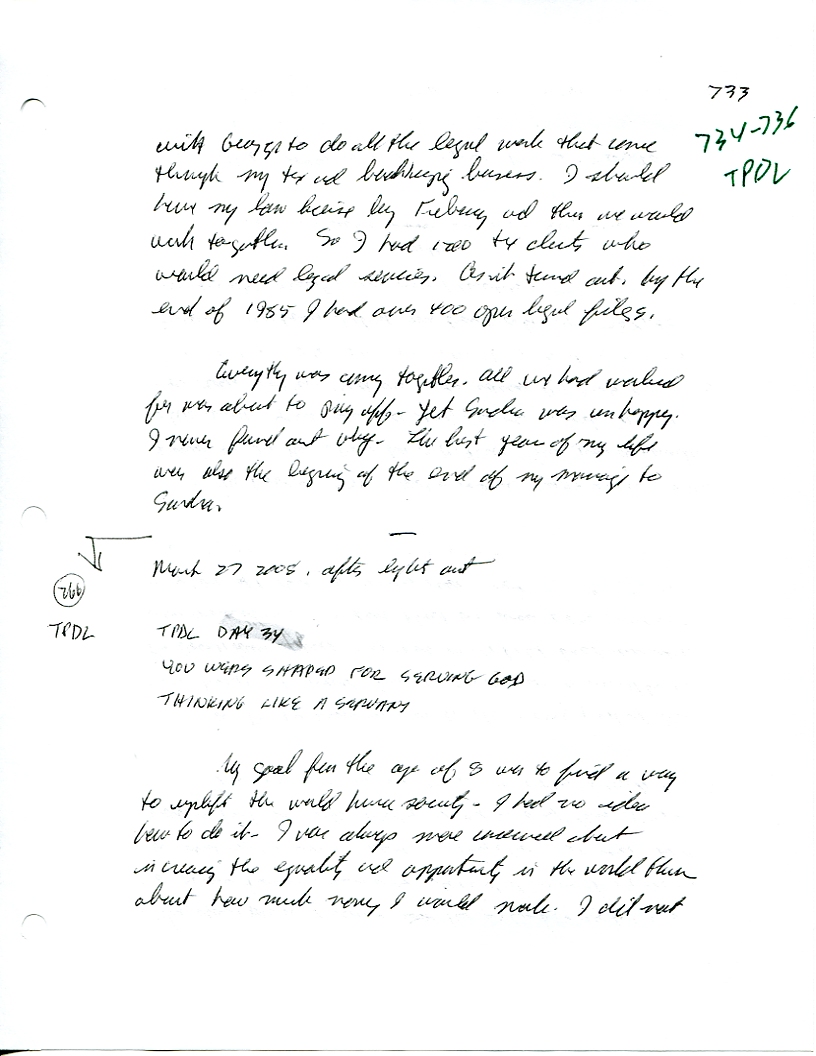 733
734-736
TPDL
with George to do all the legal work that come
through my tax and bookkeeping business. I should
have my law license by February and then we would
work together. So I had 1200 tax clients who
would need legal services. As it turned out, by the
end of 1985 I had over 400 open legal files.
Everything was coming together. All we had worked
for was about to pay off - Yet Sandra was unhappy.
I never found out why - The best year of my life
was also the beginning of the end of my marriage to
Sandra.
March 27 2008, after light out
266
TPDL
TPDL DAY 34
YOU WERE SHAPED FOR SERVING GOD
THINKING LIKE A SERVANT
My goal from the age of 8 was to find a way
to uplift the world human society - I had no idea
how to do it - I was always more concerned about
increasing the equality and opportunity in the world than
about how much money I would make. I did not